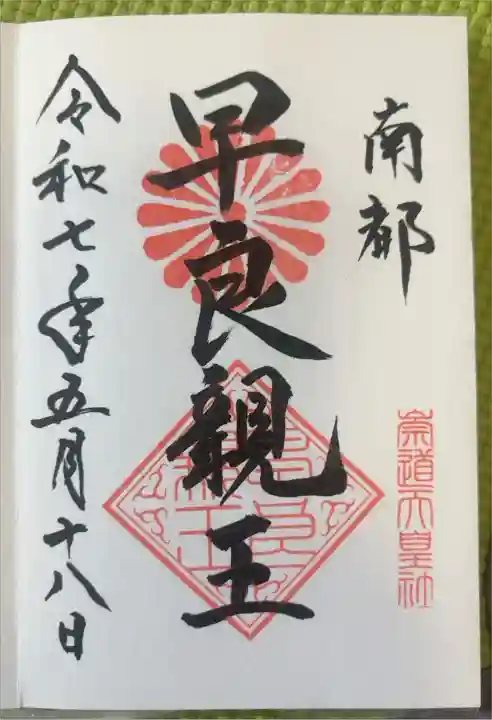 南都
崇道天皇社
早良親王
令和七年五月十八日